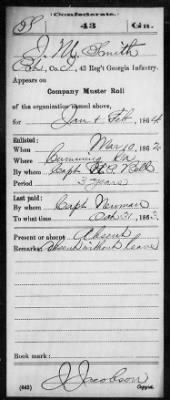 Confederate.
S 43 Ga.
J. M. Smith
Co. , 43 Reg't Georgia Infantry.
Appears on
Company Muster Roll
of the organization named above,
for Jan & Feb, 1864
Enlisted:
When Mar 10, 1862
Where Cumming Ga
By whom Capt
Period 3 years
Last paid:
By whom Capt Newman
To what time Oct 31, 1863
Present or absent Absent
Remarks: Absent without leave
Book mark:
J Jacobson
(642) Copyist.